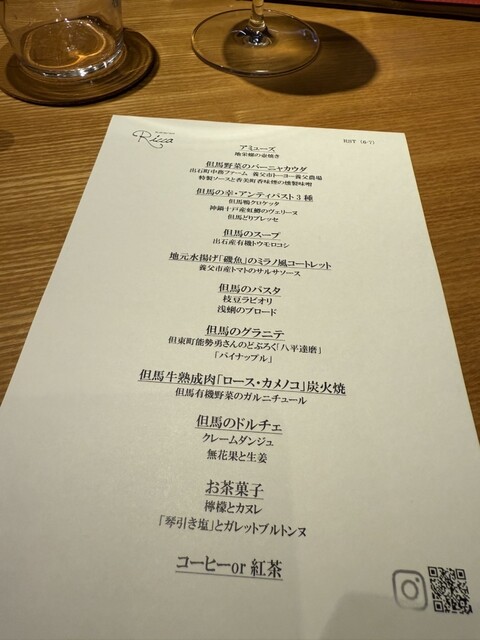 Ricca
RST (6-7)
アミューズ
地栄螺の壺焼き
但馬野菜のバーニャカウダ
出石町中曲ファーム 養父市トーヨー養父農場
特製ソースと香美町香味煙の燻製味噌
但馬の幸・アンティパスト3種
但馬鴨クロケッタ
神鍋十戸産虹鱒のヴェリーヌ
但馬どりブレッセ
但馬のスープ
出石産有機トウモロコシ
地元水揚げ「磯魚」のミラノ風コートレット
養父市産トマトのサルサソース
但馬のパスタ
枝豆ラビオリ
浅蜊のブロード
但馬のグラニテ
但東町能勢勇さんのどぶろく「八平達磨」
「パイナップル」
但馬牛熟成肉「ロース・カメノコ」炭火焼
但馬有機野菜のガルニチュール
但馬のドルチェ
クレームダンジュ
無花果と生姜
お茶菓子
檸檬とカヌレ
「琴引き塩」とガレットブルトンヌ
コーヒーor 紅茶